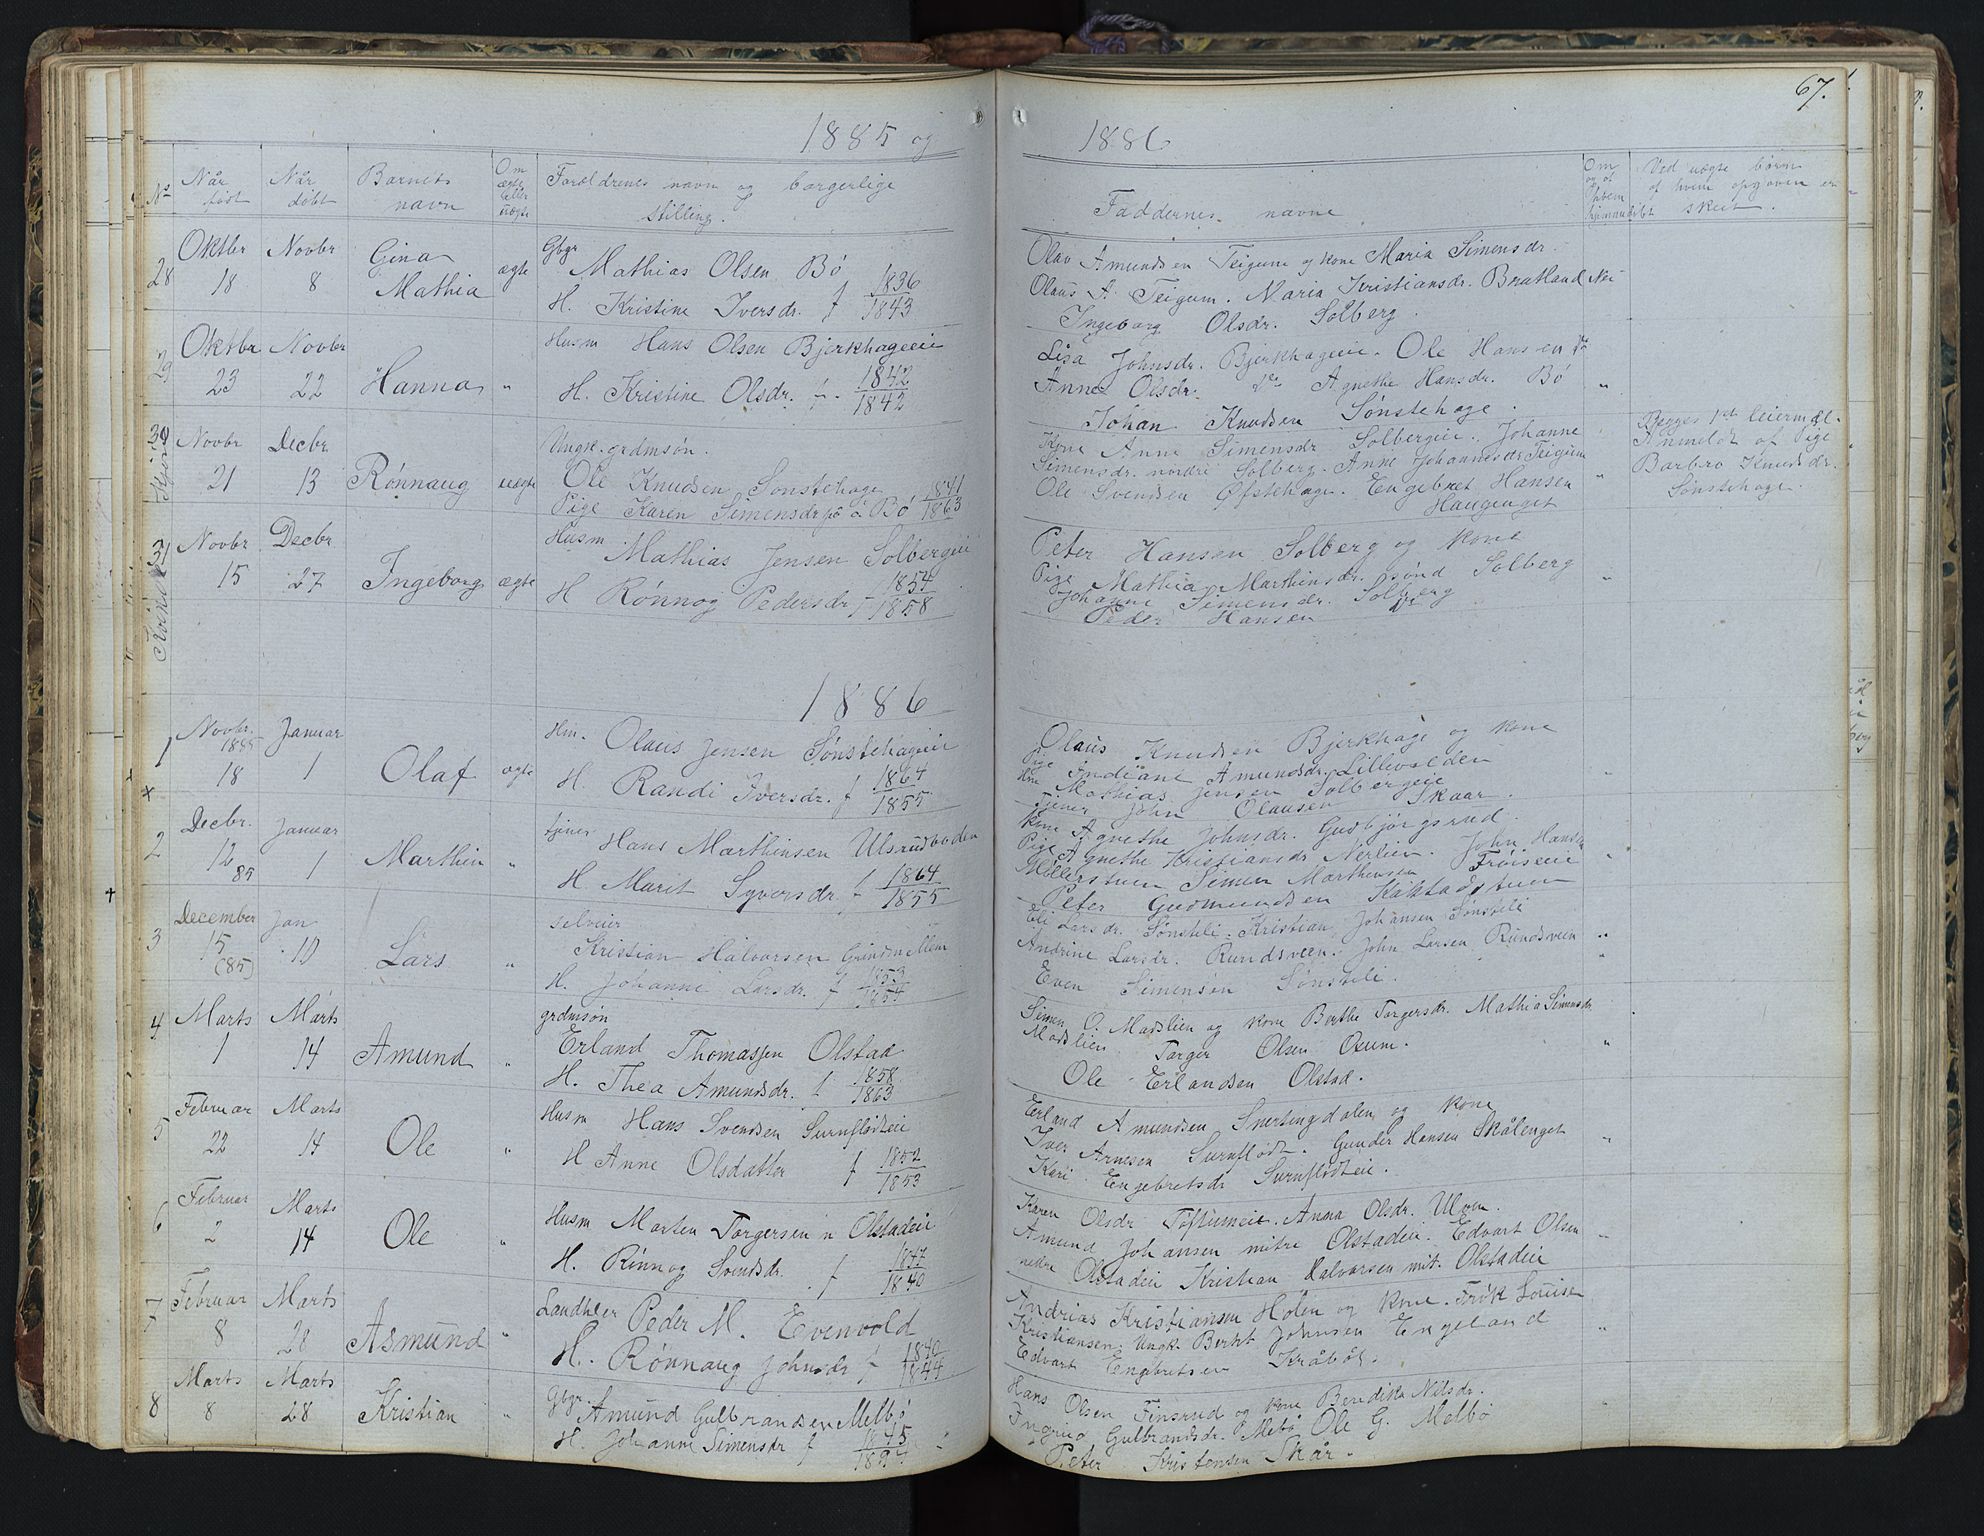 67.
1885 og 1886
No
Når født
Når døbt
Barnets navn
Om ægte eller uægte
Forældrenes navn og borgerlige stilling.
Faddernes navne
Ved uægte børn af hvem opgaven er skeet.
28 Oktbr 18 Novbr 8 Gina Mathia ægte
Gbgr Mathias Olsen Bø
H. Kristine Iversdr. f 1836 1843
Olav Amundsen Teigum og kone Maria Simensdr.
Olaus A. Teigum. Maria Kristiansdr. Bratland Nei
Ingeborg Olsdr. Solberg.
29 Oktbr 23 Novbr 22 Hanna "
Husm Hans Olsen Bjerkhageeie
H. Kristine Olsdr. f. 1842 1842
Lisa Johnsdr. Bjerkhageeie. Ole Hansen
Anne Olsdr. Agnethe Hansdr. Bø "
Johan Knudsen Sønstehage.
30 Novbr 21 Decbr 13 Rønnaug uægte
Ungk. grdmsøn.
Ole Knudsen Sønstehage 1841
Pige Karen Simensdr på Bø 1863
Kone Anne Simensdr Solbergeie. Johanne
Simensdr. nordre Solberg. Anne Johannesdr Teigum
Ole Svendsen Øfstehage. Engebret Hansen "
Haugenget
Begges 1st leiermål.
Anmeldt af Pige
Barbro Knudsdr.
Sønstehage.
31 Novbr 15 Decbr 27 Ingeborg ægte
Husm Mathias Jensen Solbergeie
H Rønnog Pedersdr f 1854 1858
Peter Hansen Solberg og kone
Pige Mathia Marthinsdr. Solberg
Johanne Simensdr. Solberg "
Peder Hansen
1886
1 Novbr 1885 18 Januar 1 Olaf ægte
Hm. Olaus Jensen Sønstehageeie
H. Randi Iversdr. f 1864 1855
Olaus Knudsen Bjerkhage og kone
Pige Indiane Amundsdr. Lillevolden
Hm Mathias Jensen Solbergeie
Tjener John Olausen Skaar.
2 Decbr. 12 85 Januar 1 Marthin "
tjener Hans Marthinsen Ulsrudboden
H. Marit Syversdr. f 1864 1855
Kone Agnethe Johnsdr. Gudbjørgsrud.
Pige Agnethe Kristiansdr Nerlien. John Hansen
Møllerstuen Simen Marthinsen Frøiseie
Peter Gudmundsen Kakstadstuen
3 December 15 (85) Jan 10 Lars "
selveier
Kristian Halvorsen Grindmellem
H. Johanne Larsdr. f 1853 1854
Eli Larsdr. Sønsteli. Kristian Johansen Sønsteli
Andrine Larsdr. Rundsveen. John Larsen Rundsveen "
Even Simensen Sønsteli.
4 Marts 1 Marts 14 Amund "
grdmsøn
Erland Thomassen Olstad
H. Thea Amundsdr. f 1858 1863
Simen O. Madslien og kone Berthe Torgersdr. Mathia Simensdr
Madslien Torger Olsen Oxum. "
Ole Erlandsen Olstad.
5 Februar 22 Marts 14 Ole "
Husm Hans Svendsen Surnflødteie
H Anne Olsdatter f 1852 1853
Erland Amundsen Snertingdalen og kone
Iver Arnesen Surnflødt. Gunder Hansen Skålenget
Kari Engebretsdr Surnflødteie.
6 Februar 2 Marts 14 Ole "
Husm Morten Torgersen n Olstadeie
H. Rønnog Svendsdr. f 1847 1840
Karen Olsdr Toftumeie. Anna Olsdr. Ulven.
Amund Johansen mitre Olstadeie. Edvart Olsen
nedre Olstadeie Kristian Halvorsen mit. Olstadeie
7 Februar 8 Marts 28 Asmund "
Landhler Peder M. Evenvold
H. Rønnaug Johnsdr f 1840 1844
Andrias Kristiansen Holen og kone. Frøk Louise
Kristiansen. Ungk Bernt Johnsen Engeland
Edvart Engebretsen Kråbøl.
8 Marts 8 Marts 28 Kristian "
Gbgr. Amund Gulbrandsen Melbø
H. Johanne Simensdr f 1845
Hans Olsen Finsrud og kone Bendike Nilsdr.
Ingrid Gulbrandsdr. Melbø Ole G. Melbø
Peter Kristensen Skår.